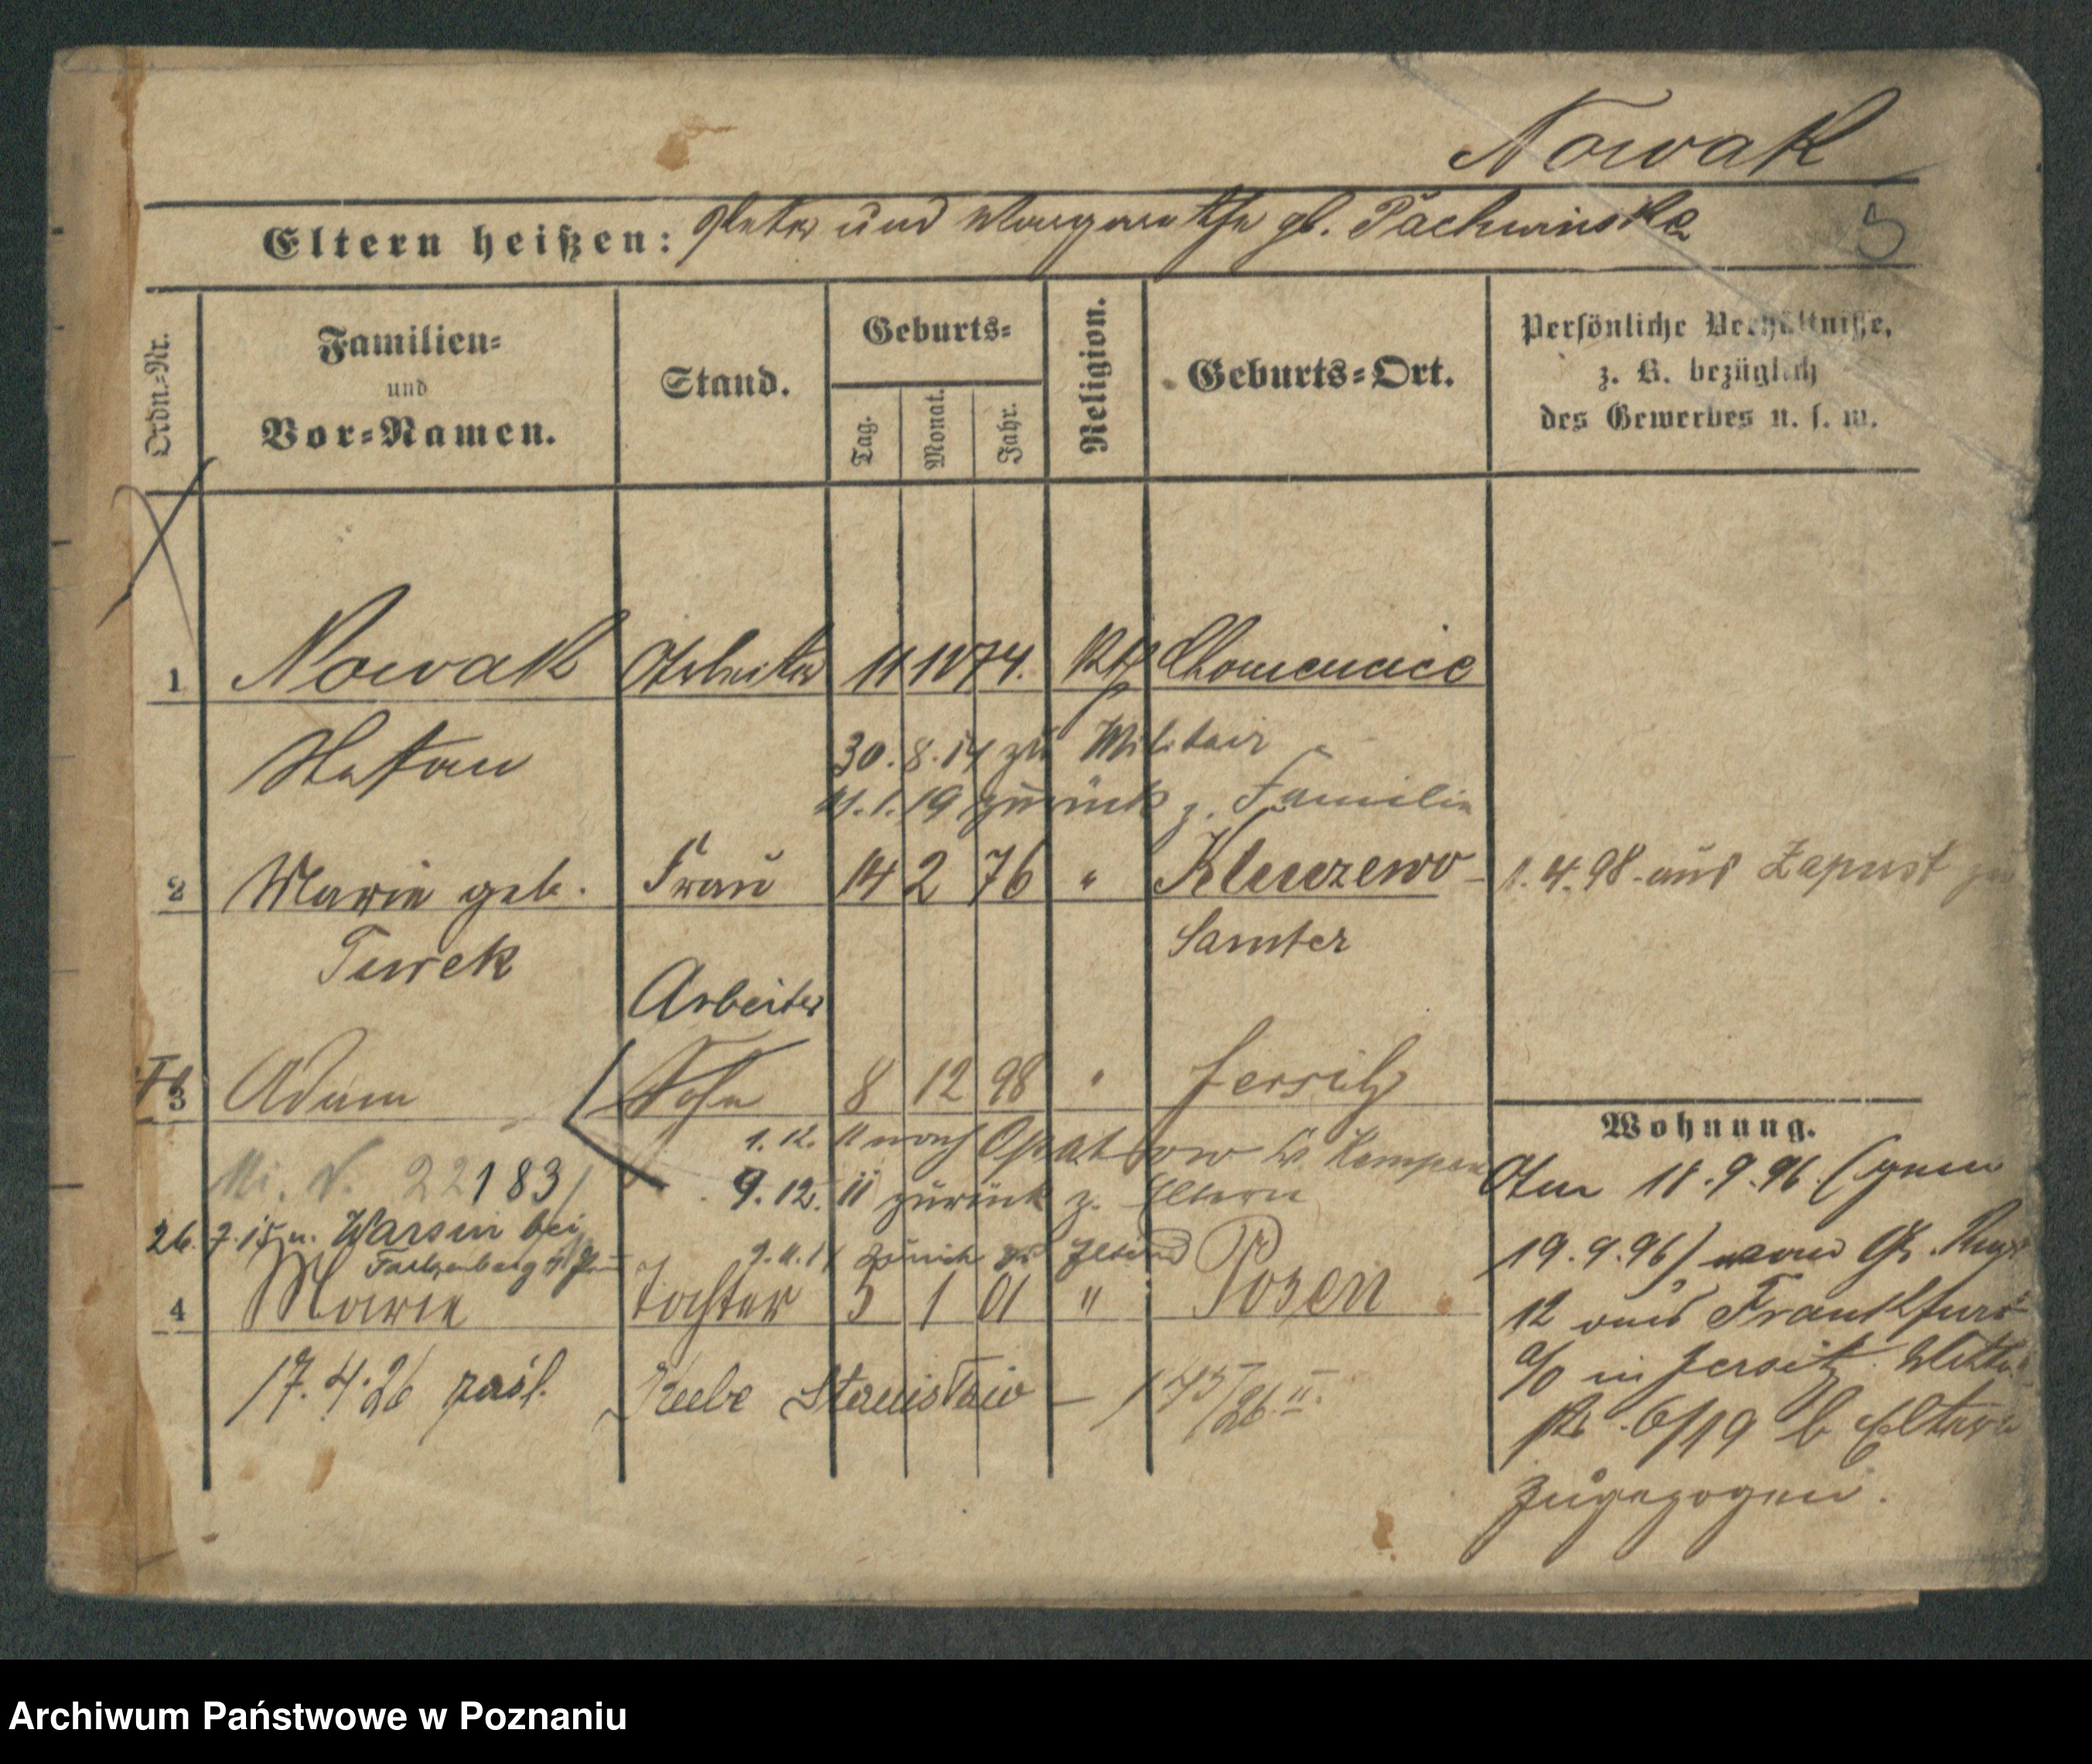 Nowak
Eltern heißen: Peter und Margarethe gb. Pachwinska
5
Ordn.-Nr.
Familien-
und
Vor-Namen.
Stand.
Geburts-
Tag.
Monat.
Jahr.
Religion.
Geburts-Ort.
Persönliche Verhältnisse,
z. B. bezüglich
des Gewerbes u. s. w.
1 Nowak Arbeiter 11 10 74. Kth Chomencice
Stefan
30. 8. 14 zu Militair
1. 19 zurück z. Familie
2 Marie geb. Frau 14 2 76 " Kluczewo - 1. 4. 98. aus Zapust
Turek
Samter
Arbeiter
3 Adam Sohn 8 12 98 " Jersitz
1. 12. 11 nach Opatow Kr. Kempen
22183
9. 12. 11 zurück z. Eltern
26. 7. 15 n. Warsin bei
Falkenberg
9. 11. 11 zurück zu Eltern
4 Marie Tochter 5 1 01 " Posen
17. 4. 26 zaśl. Stanisław —
Wohnung.
Am 18. 9. 96. (gem
19. 9. 96) vom Gr. Regt
12 aus Frankfurt
a/O in Jersitz
6/19 b Eltern
zugezogen.
Archiwum Państwowe w Poznaniu